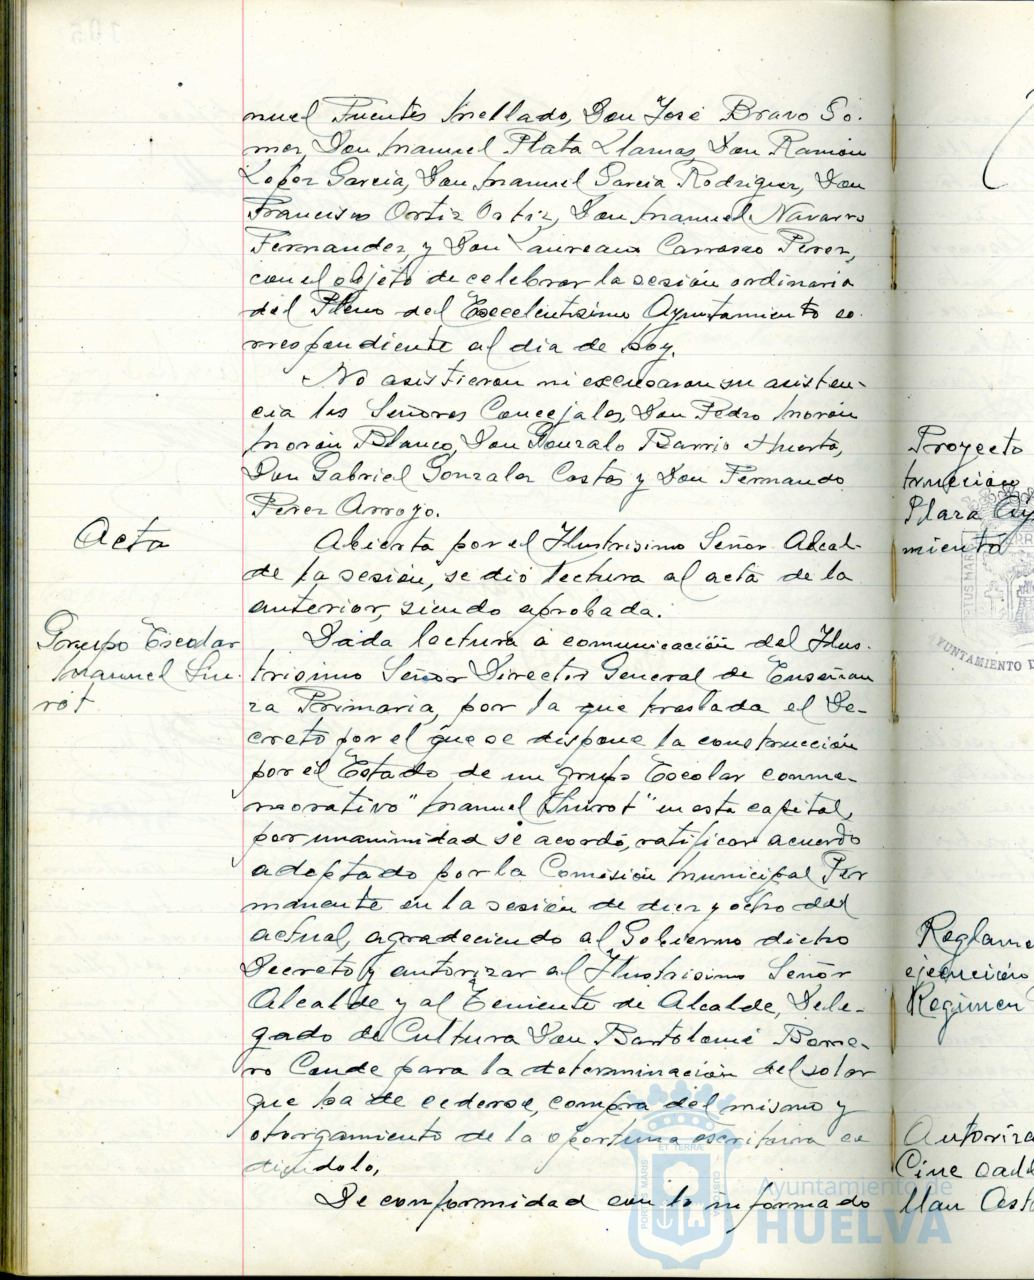 nuel Fuentes Mellado, Don José Bravo Gó-
mez, Don Manuel Plata Llamas, Don Ramón
López García, Don Manuel García Rodríguez, Don
Francisco Ortiz Ortiz, Don Manuel Navarro
Fernandez, y Don Laureano Carrasco Perez,
con el objeto de celebrar la sesión ordinaria
del Pleno del Excelentisimo Ayuntamiento co-
rrespondiente al dia de hoy.
No asistieron ni excusaron su asisten-
cia los Señores Concejales, Don Pedro Morón
Morón Blanco, Don Gonzalo Barrio Huerta,
Don Gabriel Gonzalez Costas y Don Fernando
Perez Arroyo.
Acta
Abierta por el Ilustrisimo Señor Alcal-
de la sesión, se dió lectura al acta de la
anterior, siendo aprobada.
Grupo Escolar
Manuel Siu-
rot
Dada lectura a comunicación del Ilus-
trisimo Señor Director General de Enseñan
za Primaria, por la que traslada el De-
creto por el que se dispone la construcción
por el Estado de un grupo Escolar conme-
morativo "Manuel Siurot" en esta capital,
por unanimidad se acordó, ratificar acuerdo
adoptado por la Comisión Municipal Per
manente en la sesión de diez y ocho del
actual, agradeciendo al Gobierno dicho
Decreto y autorizar al Ilustrisimo Señor
Alcalde y al Teniente de Alcalde, Dele-
gado de Cultura Don Bartolomé Borre-
ro Conde para la determinación del solar
que ha de cederse, compra del mismo y
otorgamiento de la oportuna escritura ce
diéndolo.
De conformidad con lo informado
Proyecto
trucción
Plaza Ay
miento
Reglame
ejecución
Regimen
Autoriza
Cine
llan
Ayuntamiento de
HUELVA